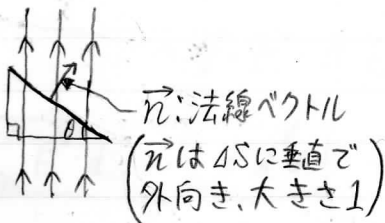 θ
n⃗:法線ベクトル
(n⃗はΔSに垂直で
外向き、大きさ1)